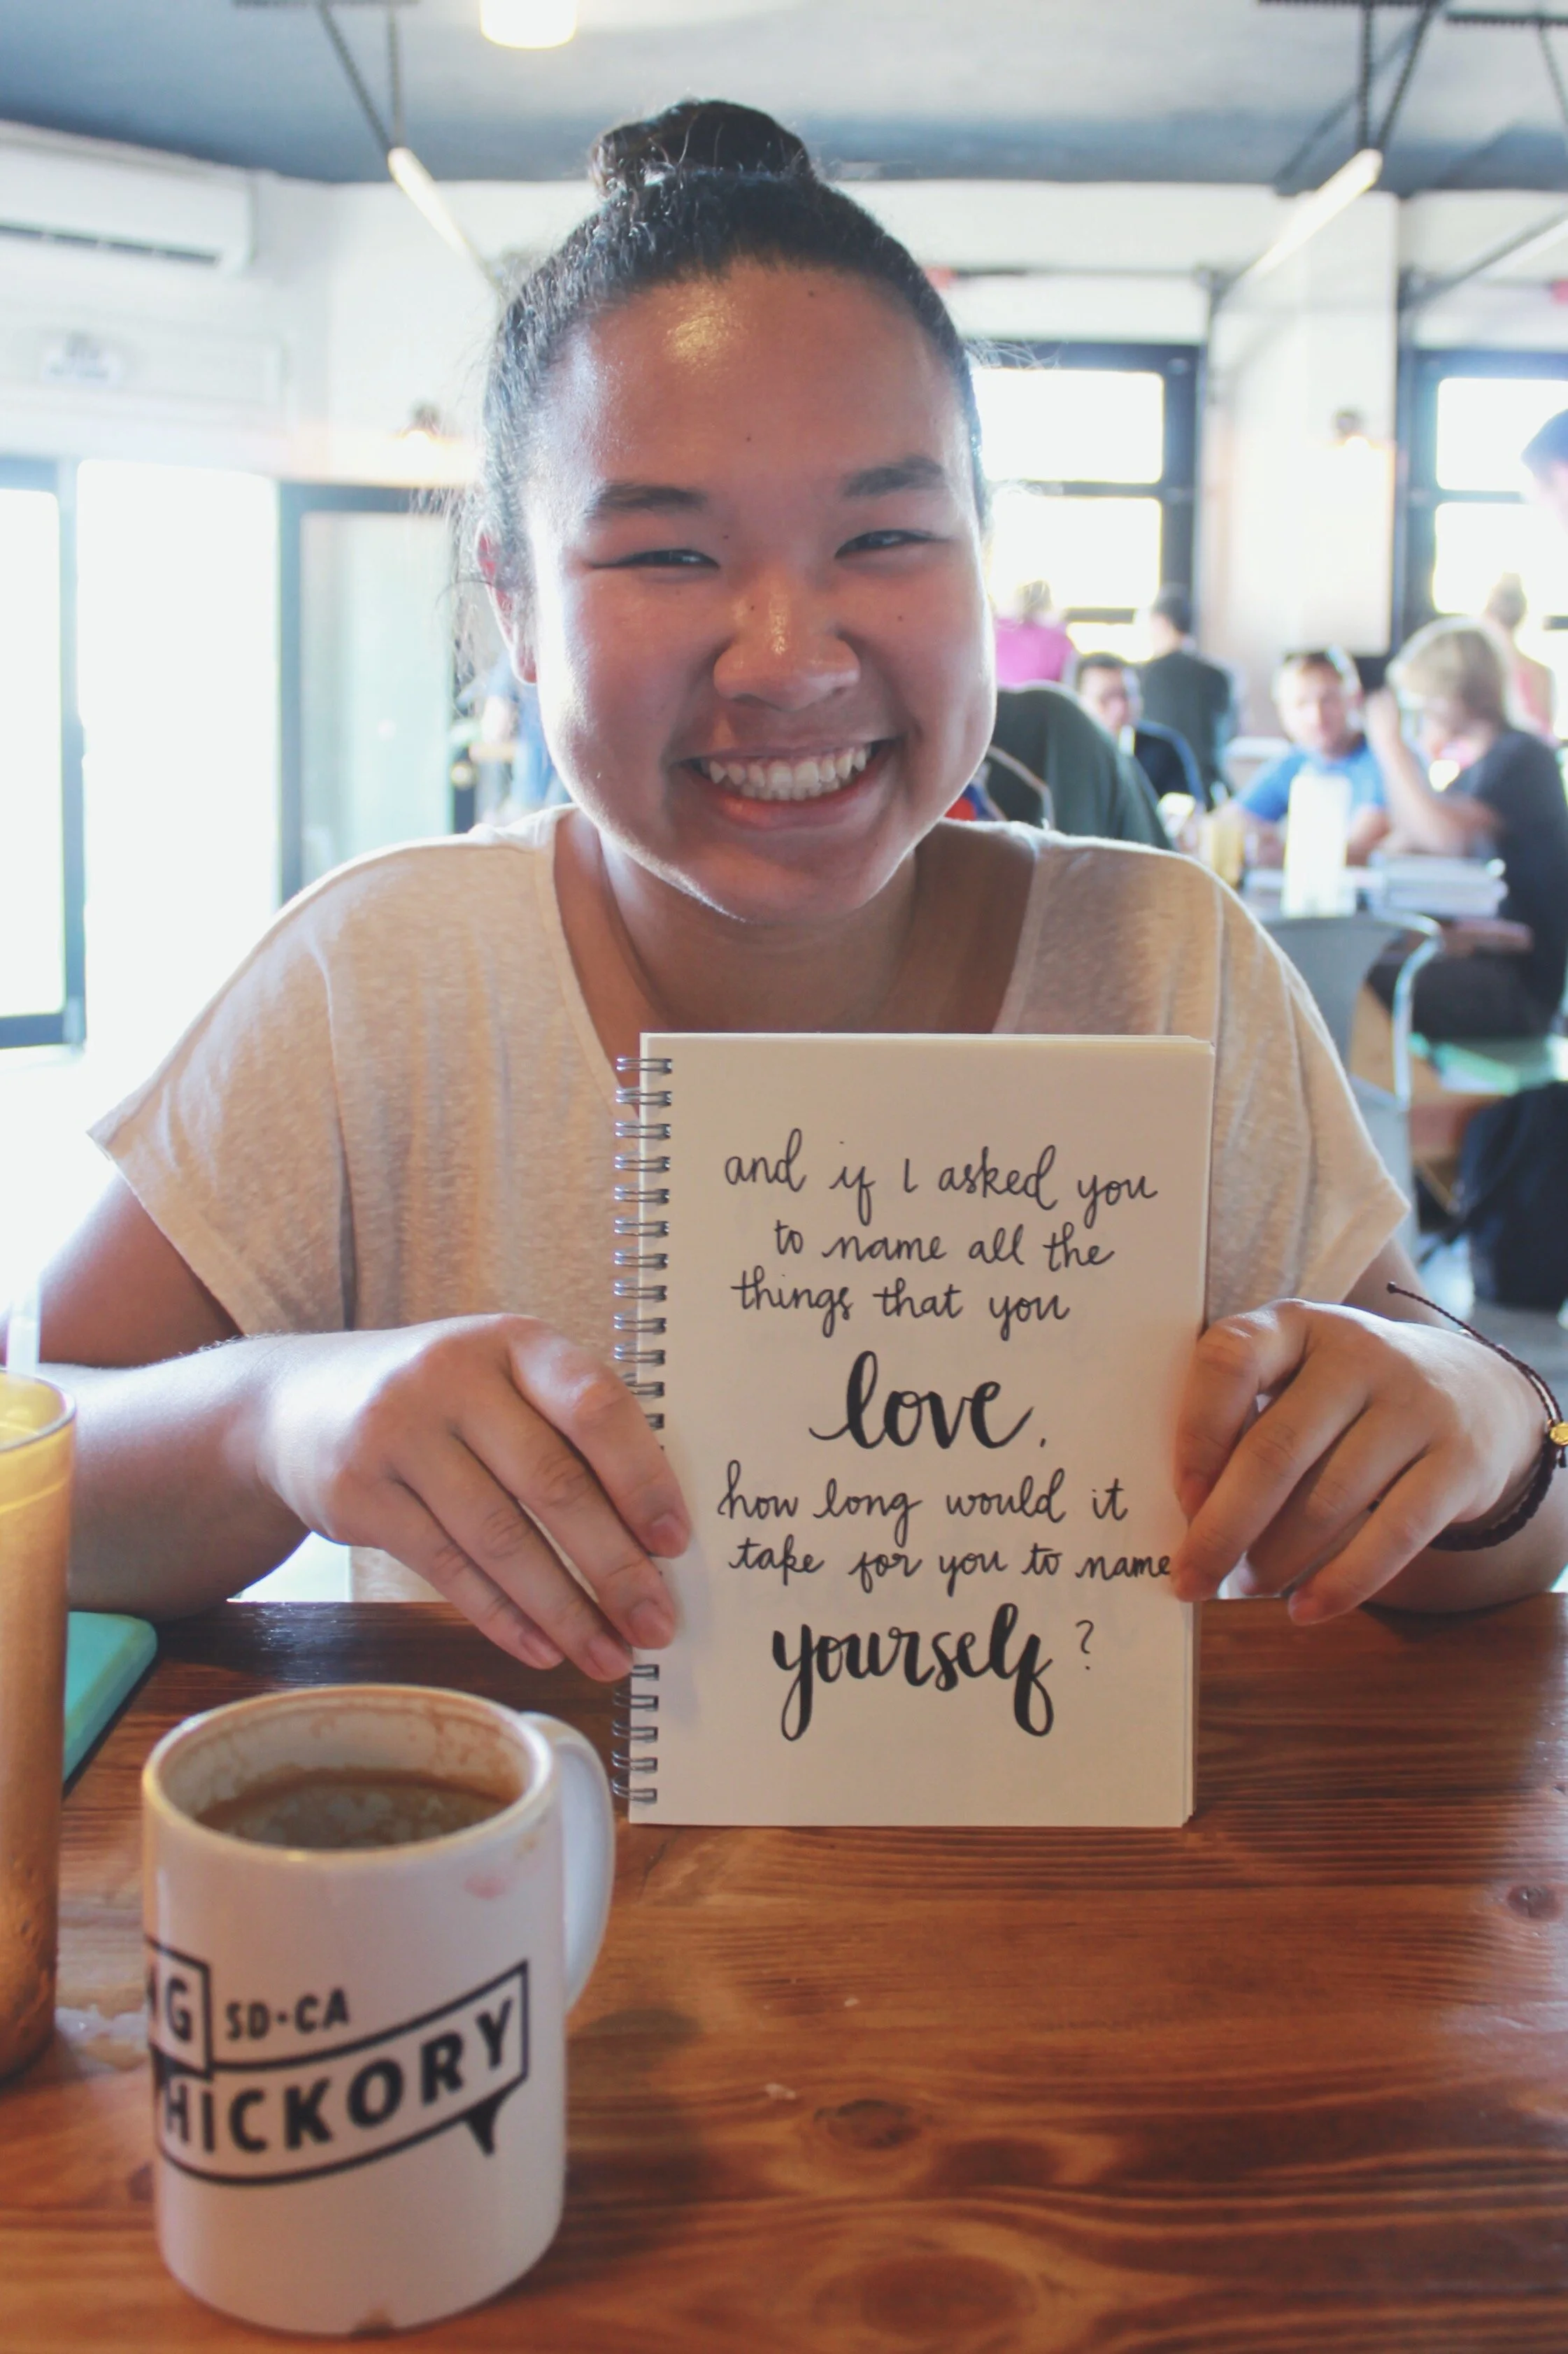 and if I asked you
to name all the
things that you
love.
how long would it
take for you to name
yourself?
G SD·CA
HICKORY